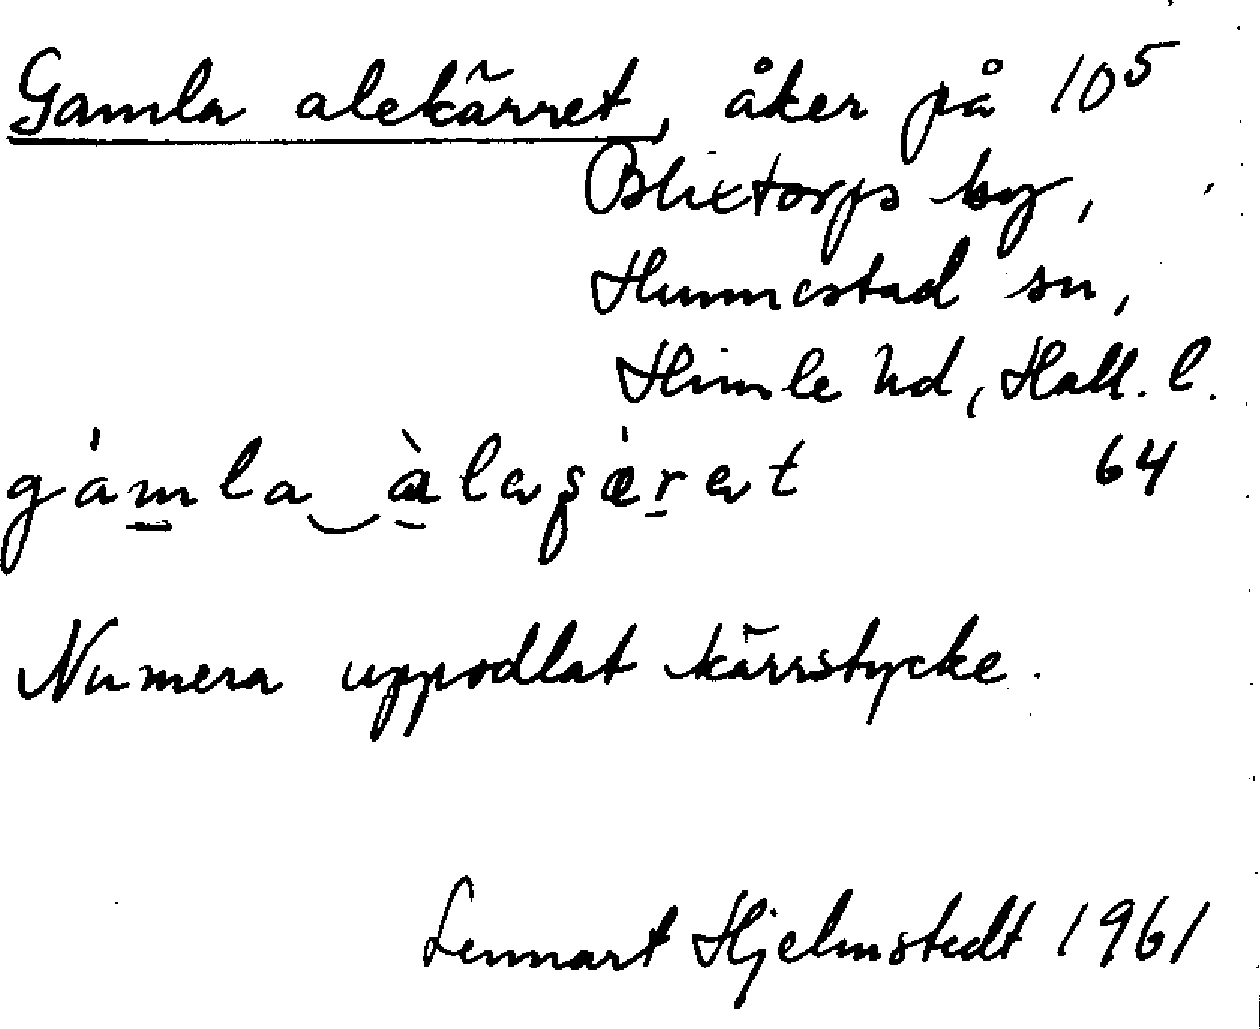 Gamla alekärret, åker på 10⁵
Blixtorps by,
Hunnestad sn,
Himle hd, Hall. l.
64
Numera uppodlat kärrstycke.
Lennart Hjelmstedt 1961